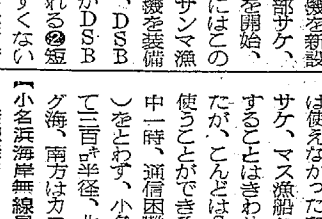 機を新設
部サケ、
を開始、
にはこの
サンマ漁
機を装備
、DSB
がDSB
れる❷短
すくない
は使えなかった
サケ、マス漁船
することはきわ
たが、こんどは
使うことができ
中一時、通信困難
)をとわず、小名
て三百㌔半径、北
グ海、南方はカ
【小名浜海岸無線局